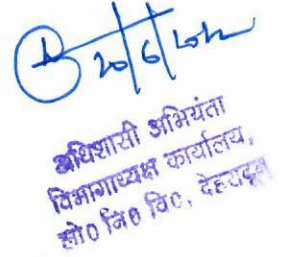 20/6/2022
अधिशासी अभियंता
विभागाध्यक्ष कार्यालय,
लो० नि० वि०, देहरादून